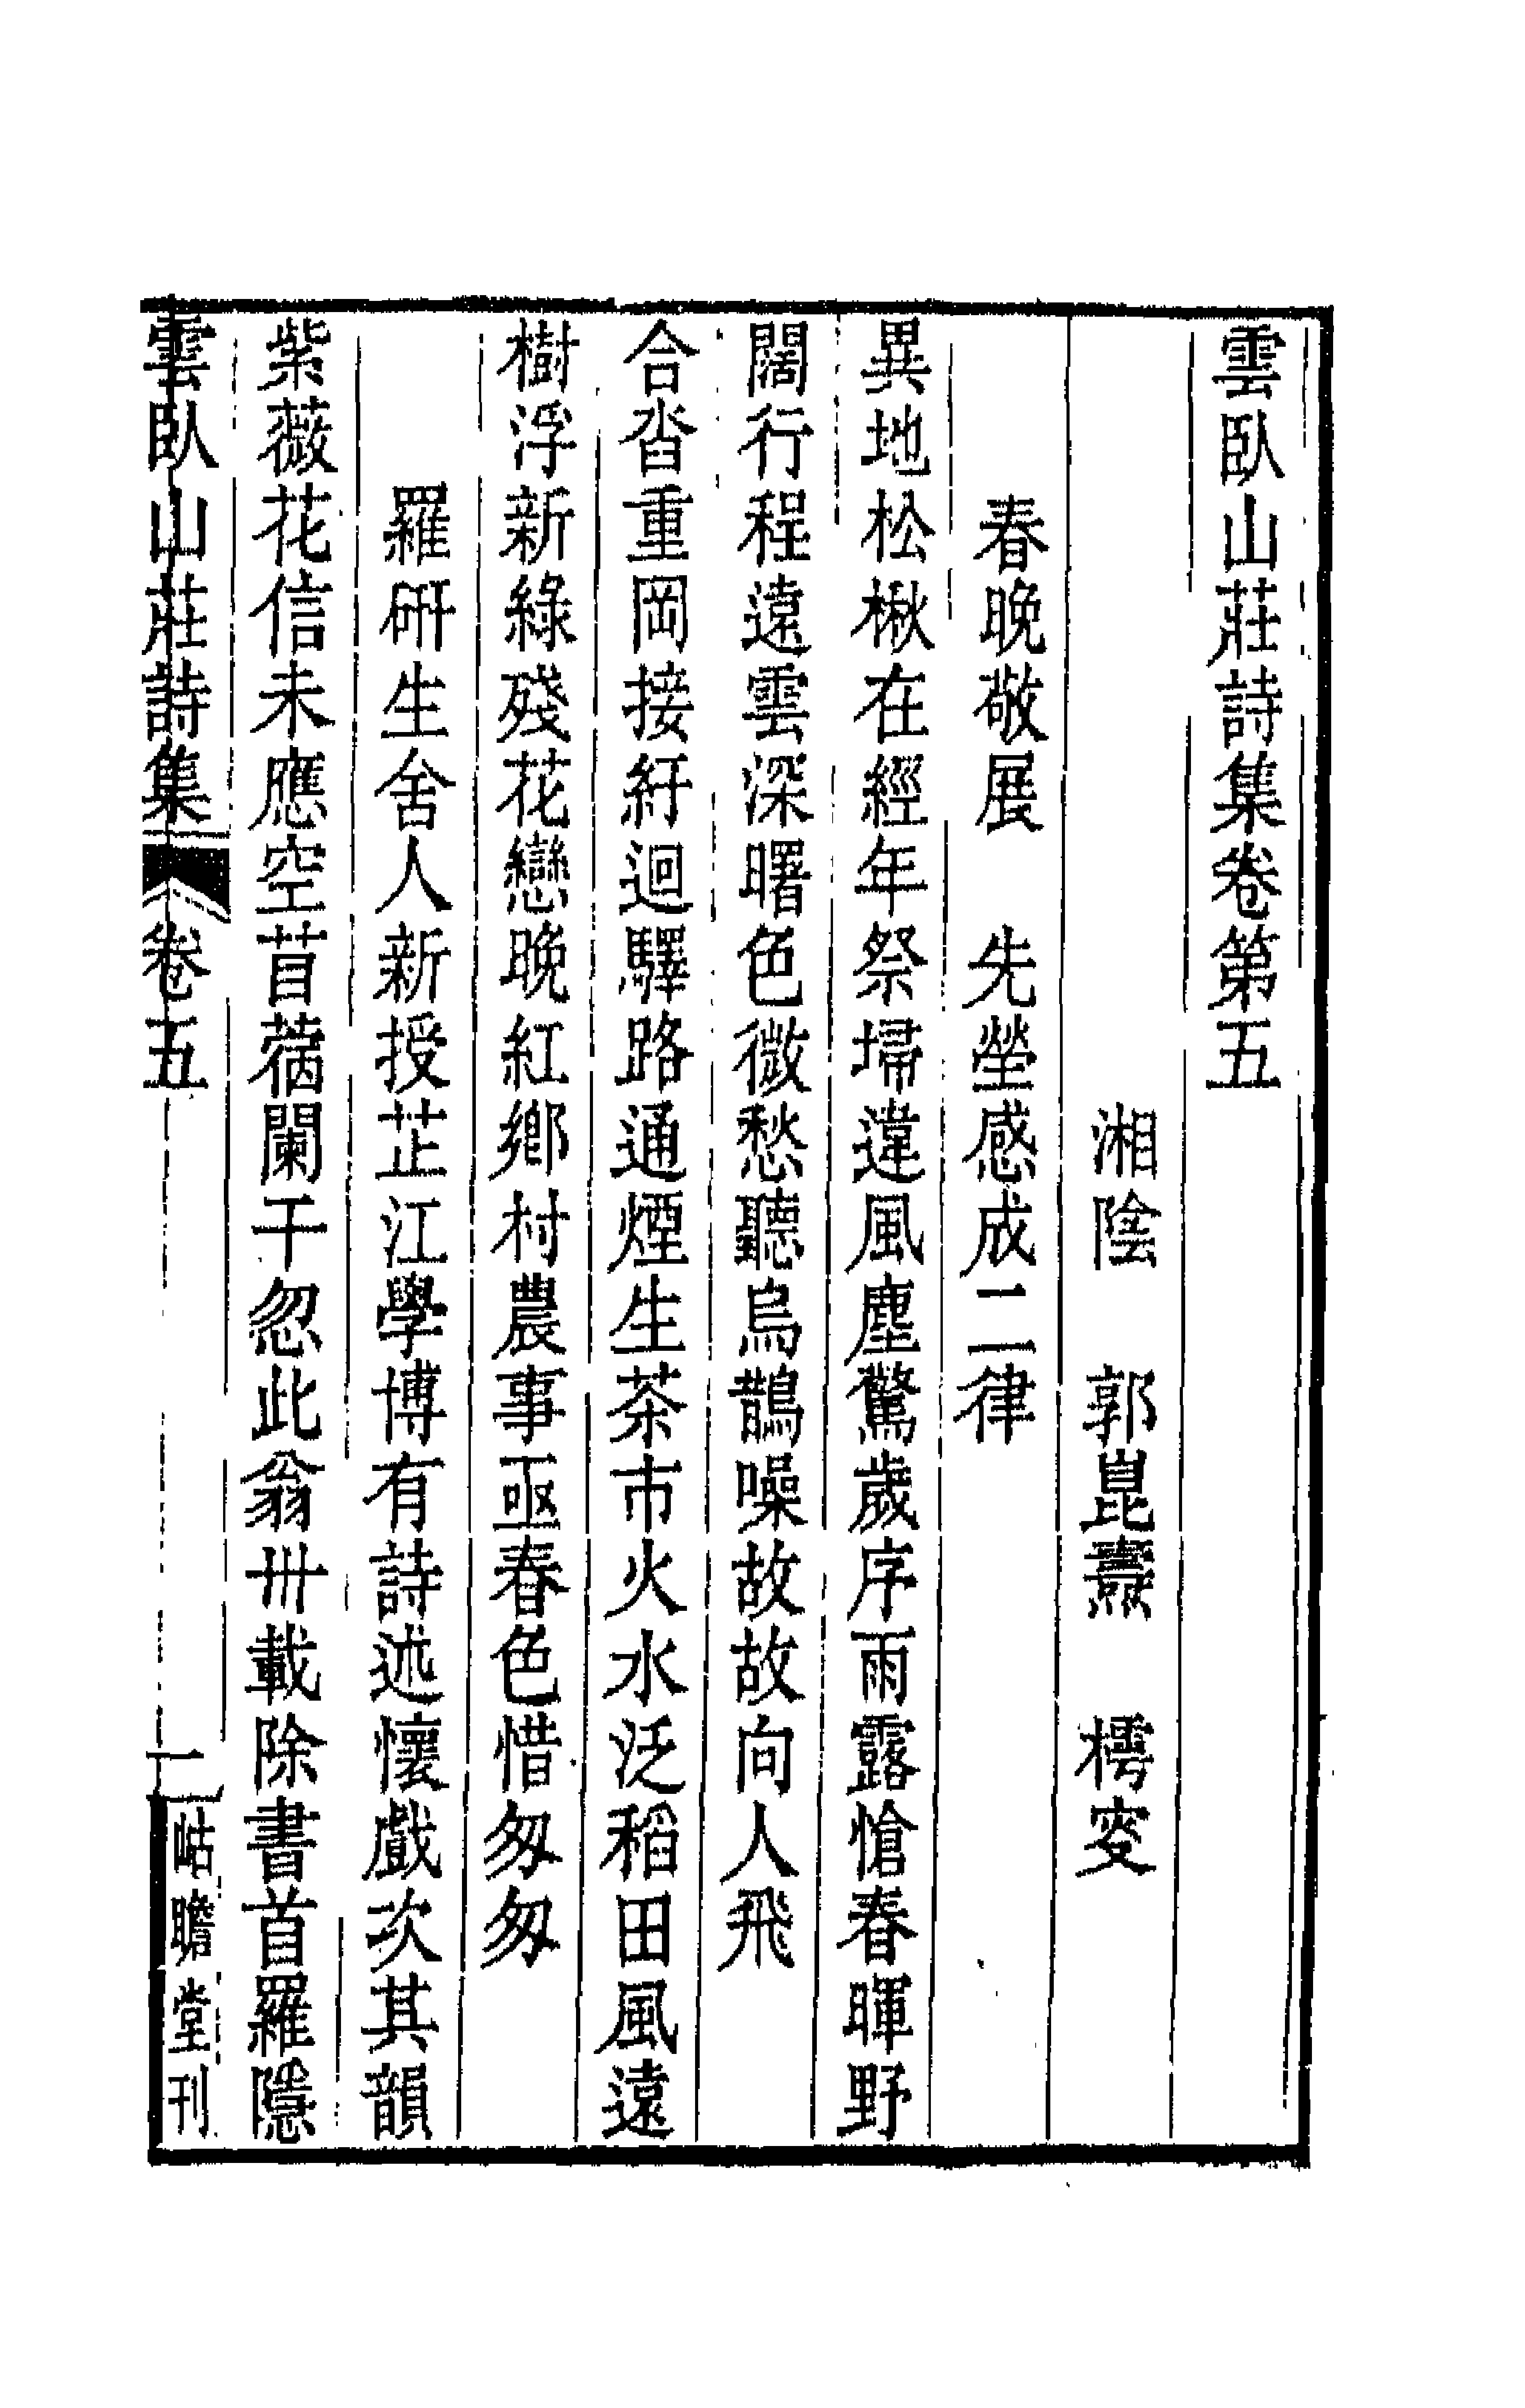 雲臥山莊詩集卷第五
湘陰　郭崑燾　樗叜
春晚敬展　先塋感成二律
異地松楸在經年祭埽違風塵驚歲序雨露愴春暉野
闊行程遠雲深曙色微愁聽烏鵲噪故故向人飛
合沓重岡接紆迴驛路通煙生茶市火水泛稻田風遠
樹浮新綠殘花戀晚紅鄉村農事亟春色惜匆匆
羅研生舍人新授芷江學博有詩述懷戲次其韻
紫薇花信未應空苜蓿闌干忽此翁卅載除書首羅隱
雲臥山莊詩集　卷五　一　岵瞻堂刊